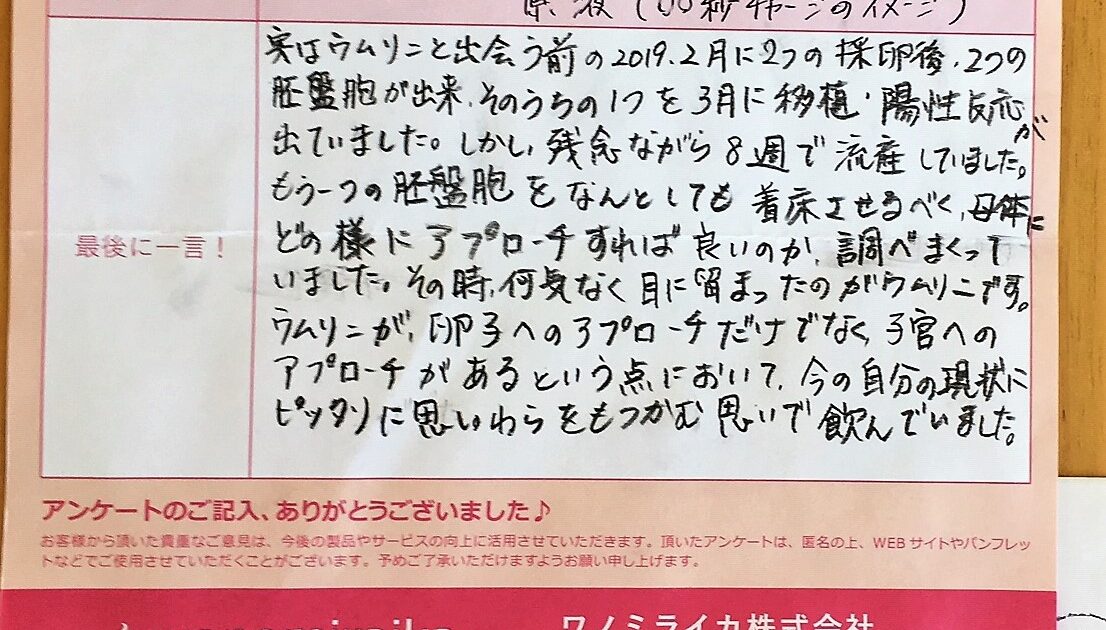 原液(〇〇秒チャージのイメージ)
実はウムリンと出会う前の2019.2月に2つの採卵後、2つの
胚盤胞が出来、そのうちの1つを3月に移植・陽性反応が
出ていました。しかし、残念ながら8週で流産していました。
もう一つの胚盤胞をなんとしても着床させるべく、母体に
どの様にアプローチすれば良いのか、調べまくって
いました。その時、何気なく目に留まったのがウムリンです。
ウムリンが、卵子へのアプローチだけでなく、子宮への
アプローチがあるという点において、今の自分の現状に
ピッタリに思いわらをもつかむ思いで飲んでいました。
最後に一言!
アンケートのご記入、ありがとうございました♪
お客様から頂いた貴重なご意見は、今後の製品やサービスの向上に活用させていただきます。頂いたアンケートは、匿名の上、WEBサイトやパンフレッ
トなどでご使用させていただくことがございます。予めご了承いただけますようお願い申し上げます。
ワノミライカ株式会社